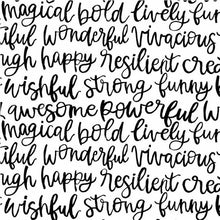 magical bold lively fun
iful wonderful vivacious
ugh happy resilient crea
wishful strong funny b
awesome powerful w
magical bold lively fun
iful wonderful vivacious
ugh happy resilient crea
wishful strong funny b
awesome powerful w